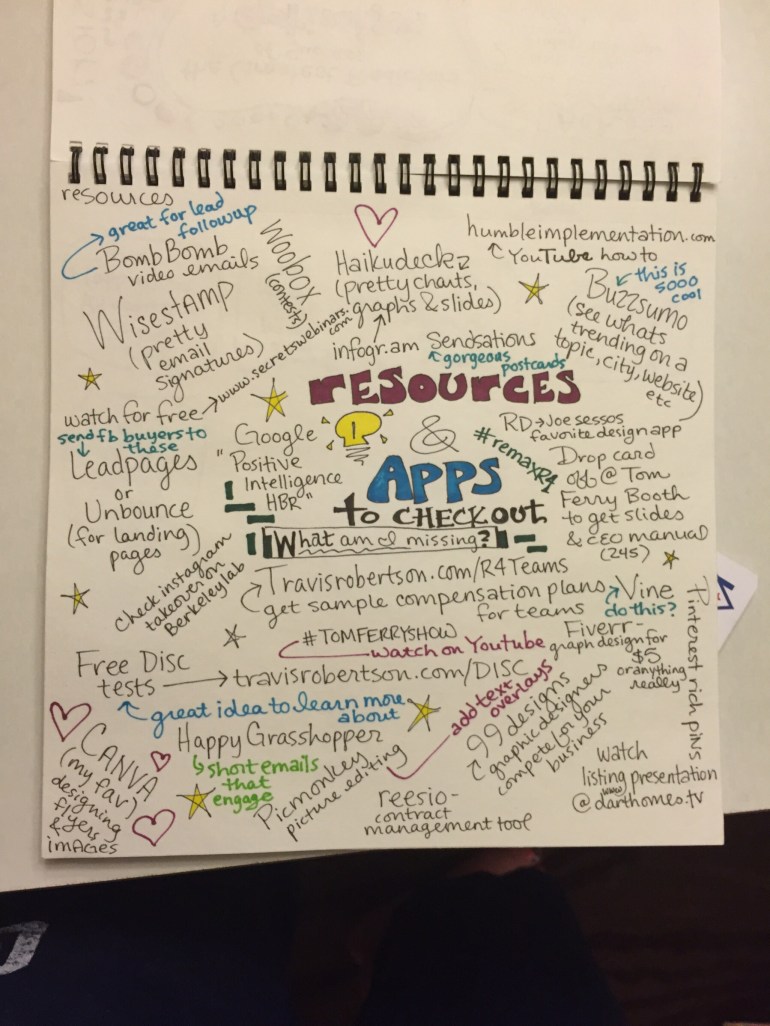 resources
great for lead
followup
BombBomb
video emails
Woobox
(contests)
Haikudeckz
(pretty charts,
graphs & slides)
infogr.am
humbleimplementation.com
YouTube how to
Buzzsumo
this is
sooo
cool
(see whats
trending on a
topic, city, website)
etc
Wisestamp
(pretty
email
signatures)
Sendsations
gorgeous
postcards
watch for free → www.secretswebinars.
com
send fb buyers to
these
Leadpages
or
Unbounce
(for landing
pages)
Google
"Positive
Intelligence
HBR"
RESOURCES
&
APPS
to CHECK OUT
What am I missing?
#remaxR4
RD → Joe sessos
favorite design app
Drop card
off @ Tom
Ferry Booth
to get slides
& CEO manual
(245)
Check instagram
takeover on
Berkeleylab
Travisrobertson.com/R4Teams
get sample compensation plans
for teams
Vine
do this?
Pinterest rich pins
#TOMFERRYSHOW
watch on Youtube
Fiverr-
graph design for
$5
or anything
really
Free Disc
tests → travisrobertson.com/DISC
great idea to learn more
about
add text
overlays
99 designs
graphic designers
compete for your
business
CANVA
(my fav)
designing
flyers
&
images
Happy Grasshopper
short emails
that
engage
Picmonkey
picture editing
reesio-
contract
management tool
watch
listing presentation
www
@darthomes.tv